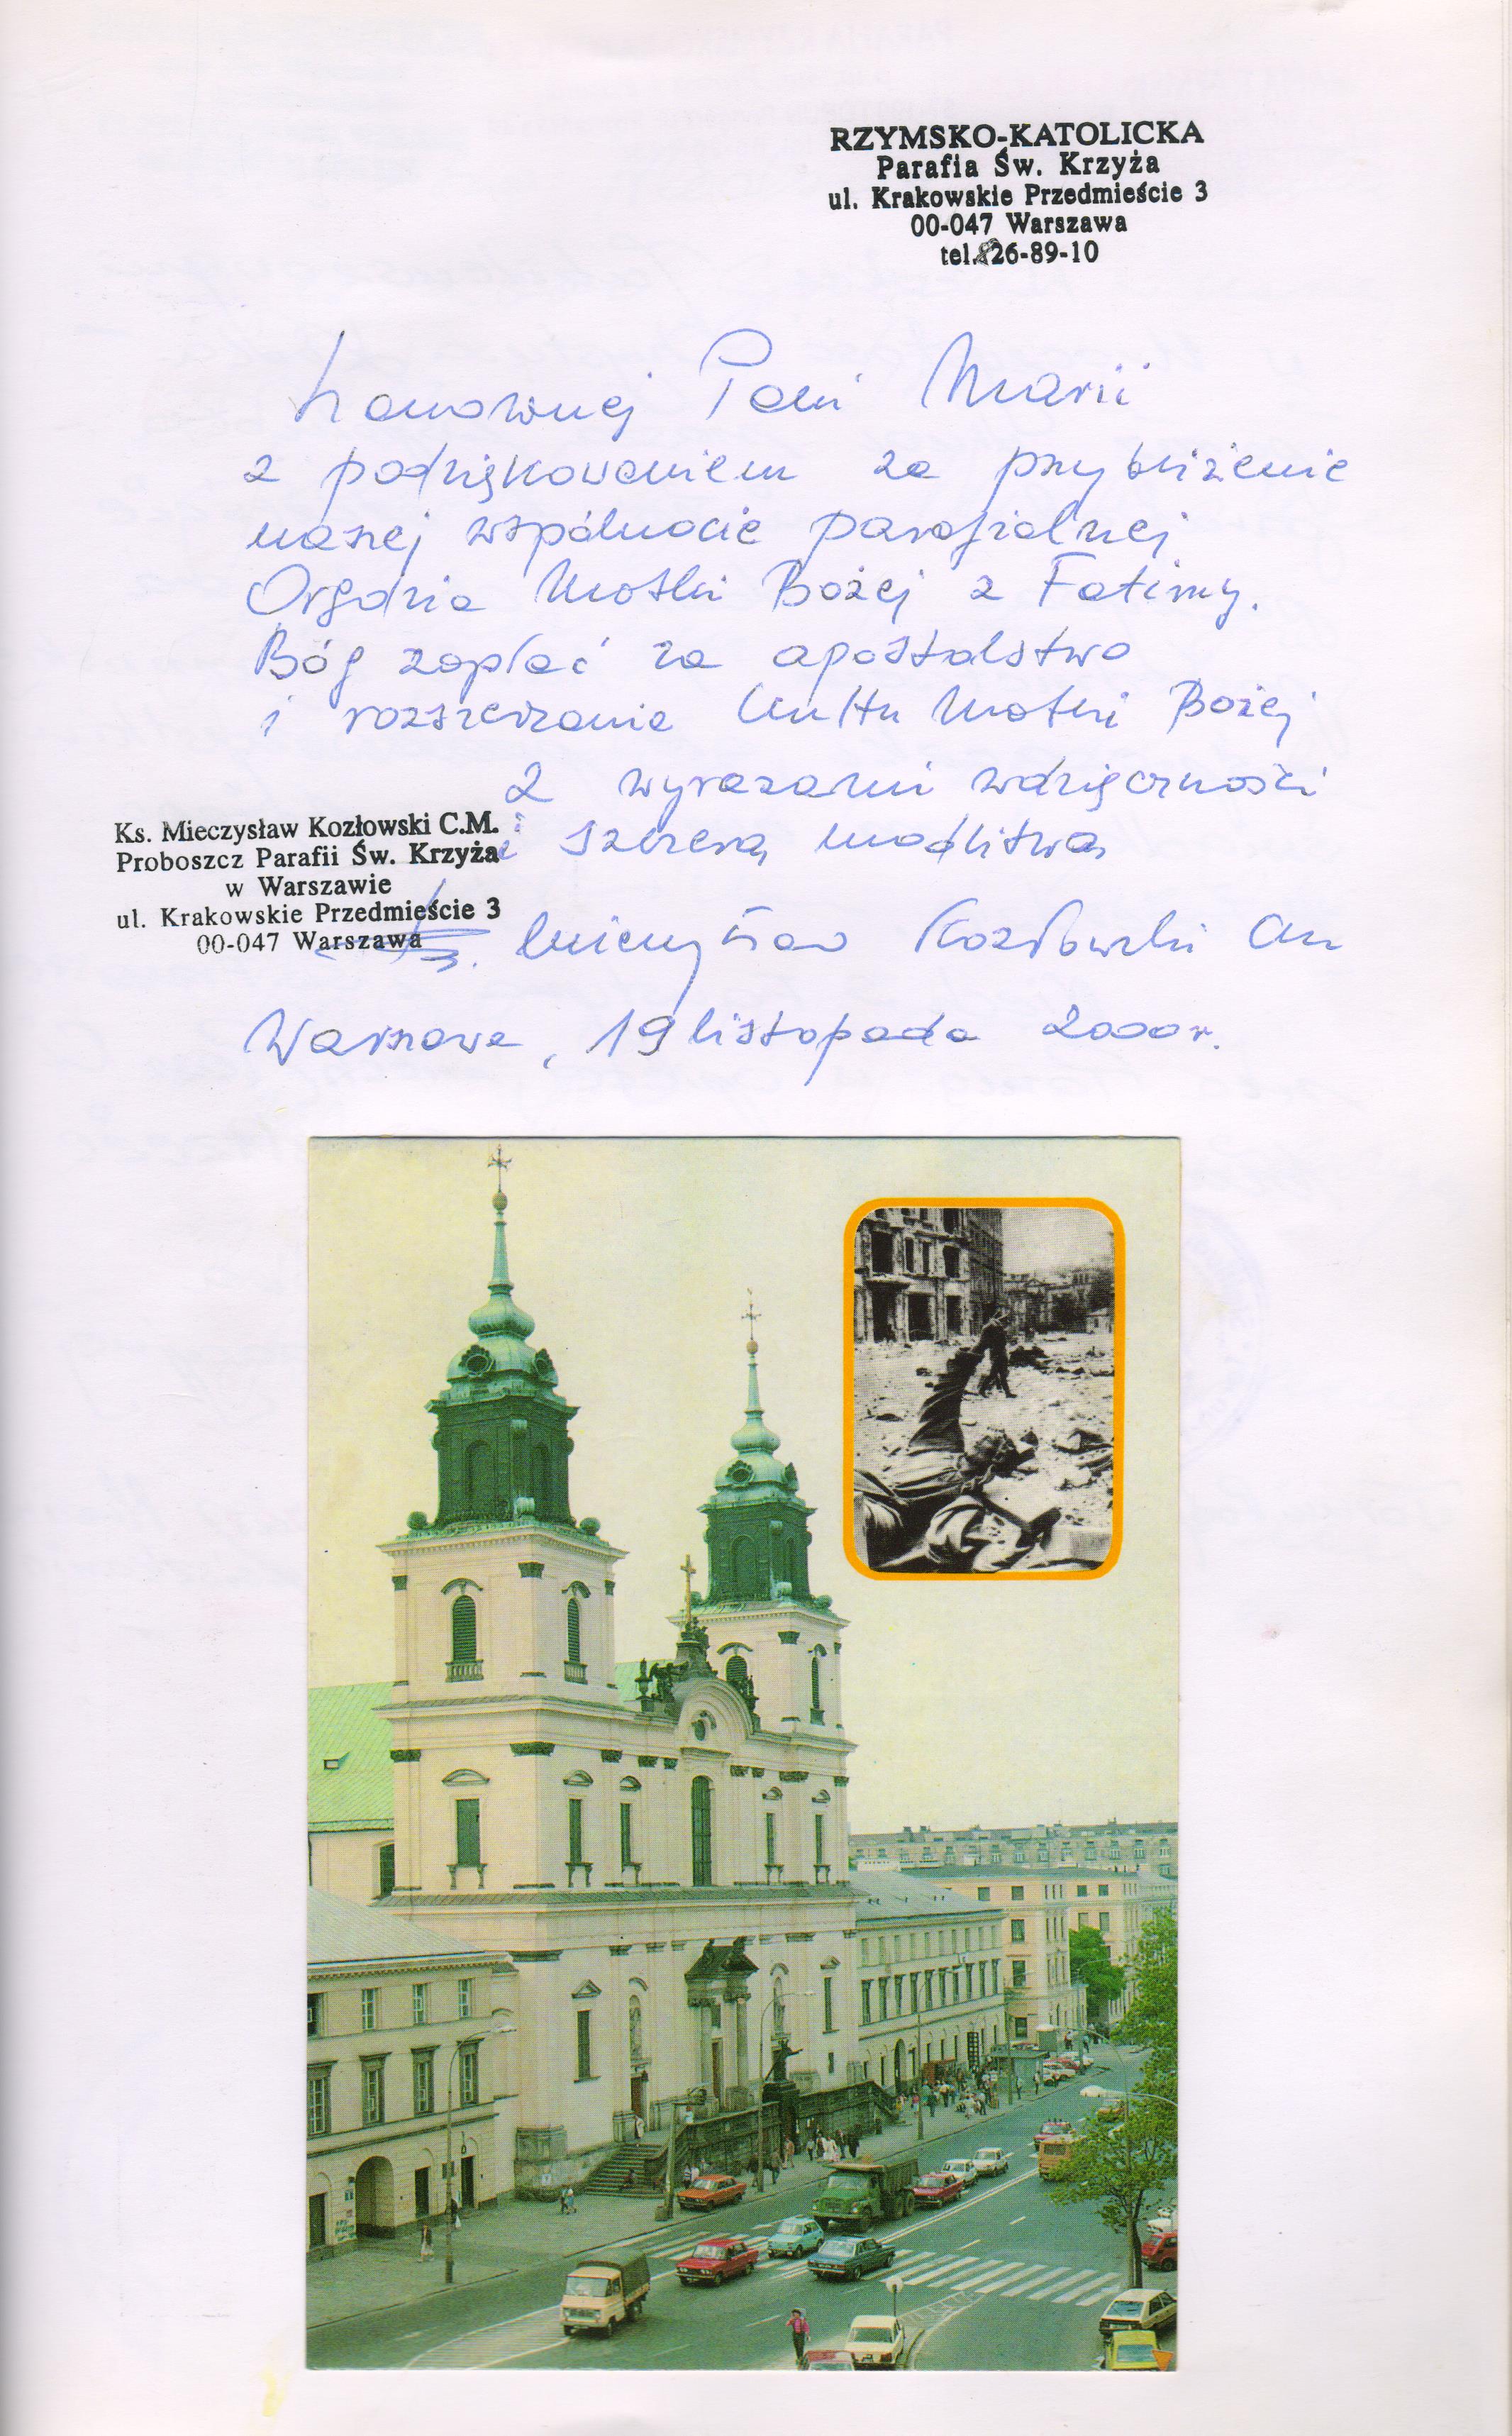 RZYMSKO-KATOLICKA
Parafia Św. Krzyża
ul. Krakowskie Przedmieście 3
00-047 Warszawa
tel. 826-89-10
Szanownej Pani Marii
z podziękowaniem za przybliżenie
naszej wspólnocie parafialnej
Orędzia Matki Bożej z Fatimy.
Bóg zapłać za apostolstwo
i rozszerzanie kultu Matki Bożej
z wyrazami wdzięczności
i szczerą modlitwą
Ks. Mieczysław Kozłowski C.M.
Proboszcz Parafii Św. Krzyża
w Warszawie
ul. Krakowskie Przedmieście 3
00-047 Warszawa
Ks. Mieczysław Kozłowski CM
Warszawa, 19 listopada 2000 r.